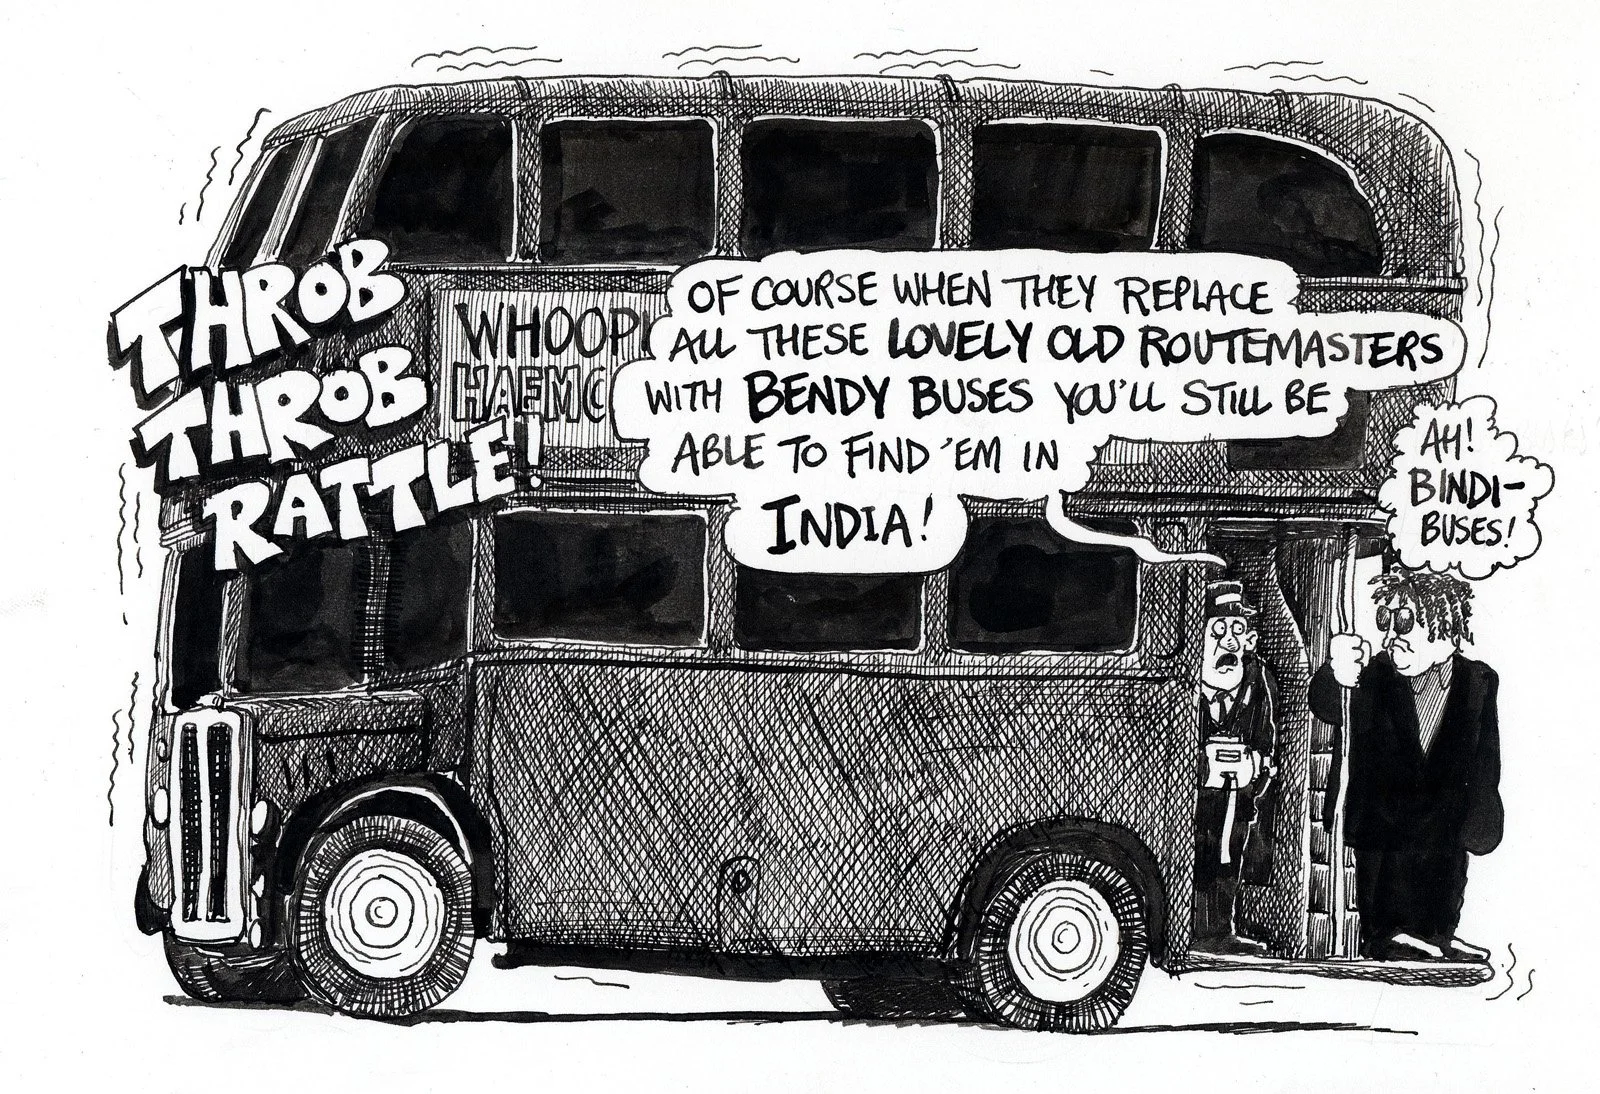 THROB
THROB
RATTLE!
WHOOPI
HAEMO
OF COURSE WHEN THEY REPLACE
ALL THESE LOVELY OLD ROUTEMASTERS
WITH BENDY BUSES YOU'LL STILL BE
ABLE TO FIND 'EM IN
INDIA!
AH!
BINDI-
BUSES!